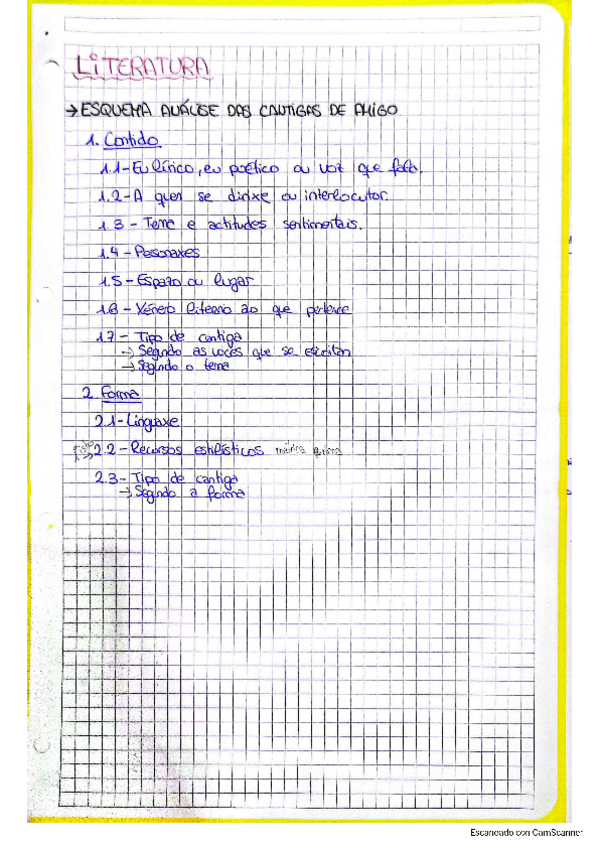 LITERATURA
→ ESQUEMA ANÁLISE DAS CANTIGAS DE AMIGO
1. Contido
1.1-Eu lírico, eu poético ou voz que fala.
1.2-A quen se dirixe ou interlocutor.
1.3 - Tema e actitudes sentimentais.
1.4 - Personaxes
1.5 - Espazo ou lugar
1.6 - Xénero literario ao que pertence
1.7 - Tipo de cantiga
→ Segundo as voces que se escoitan
→ Segundo o tema
2. Forma
2.1-Linguaxe
2.2-Recursos estilísticos métrica e rima
2.3- Tipo de cantiga
→ Segundo a forma
Escaneado con CamScanner